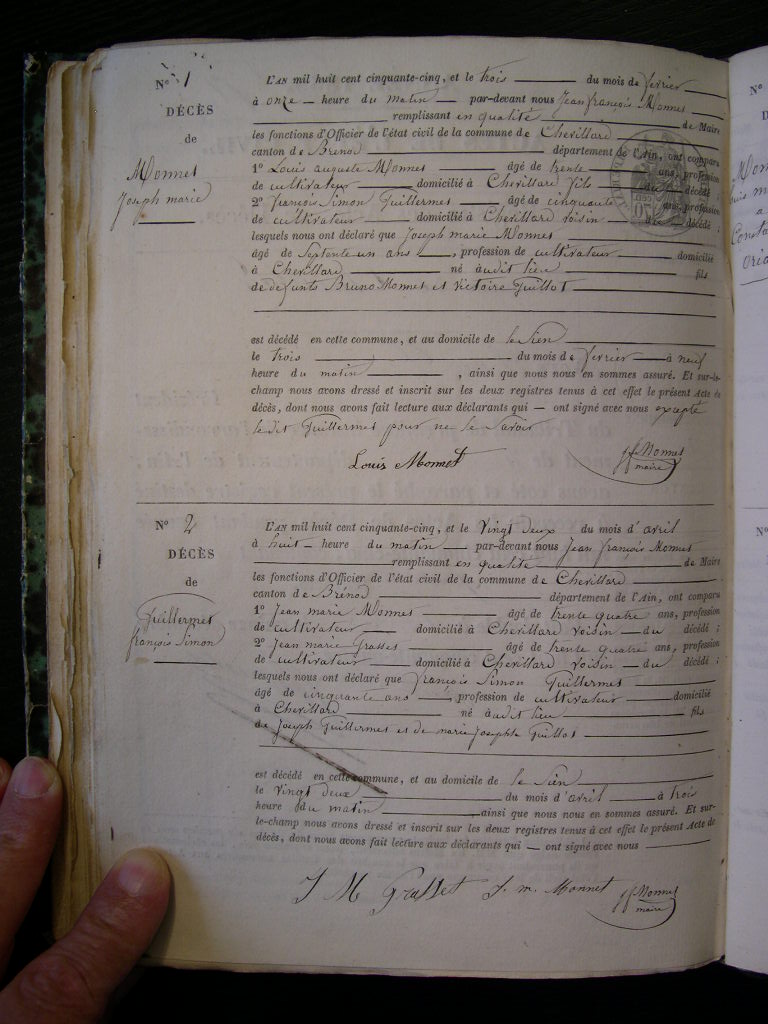 N° 1
DÉCÈS
de
Monnet
Joseph marie
L'AN mil huit cent cinquante-cinq, et le trois du mois de fevrier
à onze heure du matin par-devant nous Jean françois Monnet
remplissant en qualité de Maire
les fonctions d'Officier de l'état civil de la commune de Chevillard
canton de Brenod département de l'Ain, ont comparu
1° Louis auguste Monnet âgé de trente ans, profession
de cultivateur domicilié à Chevillard fils du décédé ;
2° françois Simon Guillermet âgé de cinquante ans, profession
de cultivateur domicilié à Chevillard voisin du décédé ;
lesquels nous ont déclaré que Joseph marie Monnet
âgé de Septente un ans, profession de cultivateur domicilié
à Chevillard né audit lieu fils
de defunts Bruno Monnet et victoire Guillot
est décédé en cette commune, et au domicile de le Sien
le trois du mois de fevrier à neuf
heure du matin, ainsi que nous nous en sommes assuré. Et sur-le-
champ nous avons dressé et inscrit sur les deux registres tenus à cet effet le présent Acte de
décès, dont nous avons fait lecture aux déclarants qui — ont signé avec nous excepté
le dit Guillermet pour ne le Savoir
Louis Monnet
jf Monnet
maire
N° 2
DÉCÈS
de
Guillermet
françois Simon
L'AN mil huit cent cinquante-cinq, et le Vingt deux du mois d'avril
à huit heure du matin par-devant nous Jean françois Monnet
remplissant en qualité de Maire
les fonctions d'Officier de l'état civil de la commune de Chevillard
canton de Brénod département de l'Ain, ont comparu
1° Jean marie Monnet âgé de trente quatre ans, profession
de cultivateur domicilié à Chevillard voisin du décédé ;
2° Jean marie Grasset âgé de trente quatre ans, profession
de cultivateur domicilié à Chevillard voisin du décédé ;
lesquels nous ont déclaré que françois Simon Guillermet
âgé de cinquante ans, profession de cultivateur domicilié
à Chevillard né audit lieu fils
de Joseph Guillermet et de marie Josephte Guillot
est décédé en cette commune, et au domicile de le Sien
le vingt deux du mois d'avril à trois
heure du matin, ainsi que nous nous en sommes assuré. Et sur-
le-champ nous avons dressé et inscrit sur les deux registres tenus à cet effet le présent Acte de
décès, dont nous avons fait lecture aux déclarants qui — ont signé avec nous
J M Grasset J. m. Monnet
jf Monnet
maire